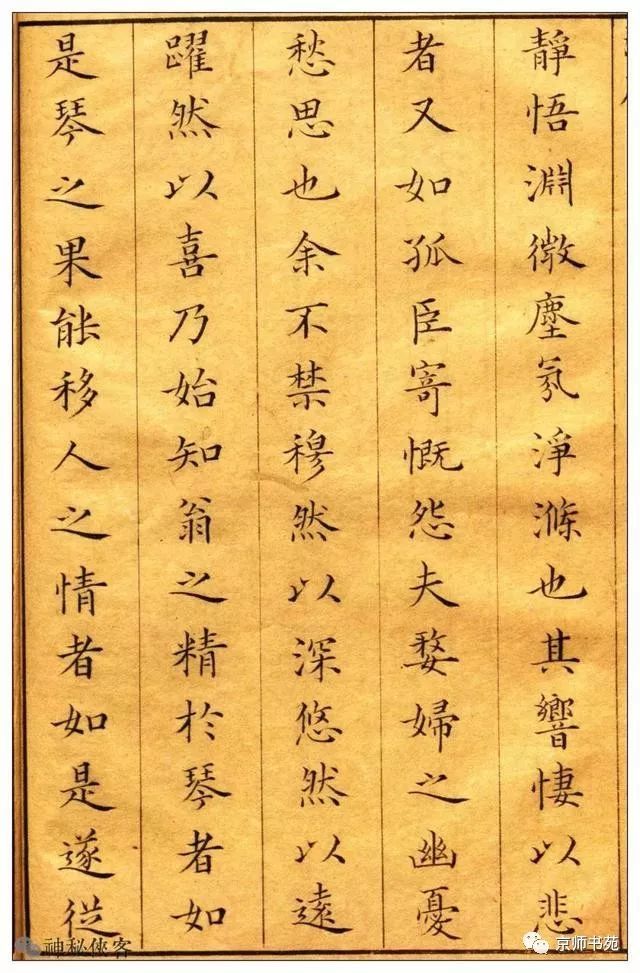 靜悟淵微塵氛淨滌也其響悽以悲
者又如孤臣寄慨怨夫嫠婦之幽憂
愁思也余不禁穆然以深悠然以遠
躍然以喜乃始知翁之精於琴者如
是琴之果能移人之情者如是遂從
神秘俠客
京师书苑